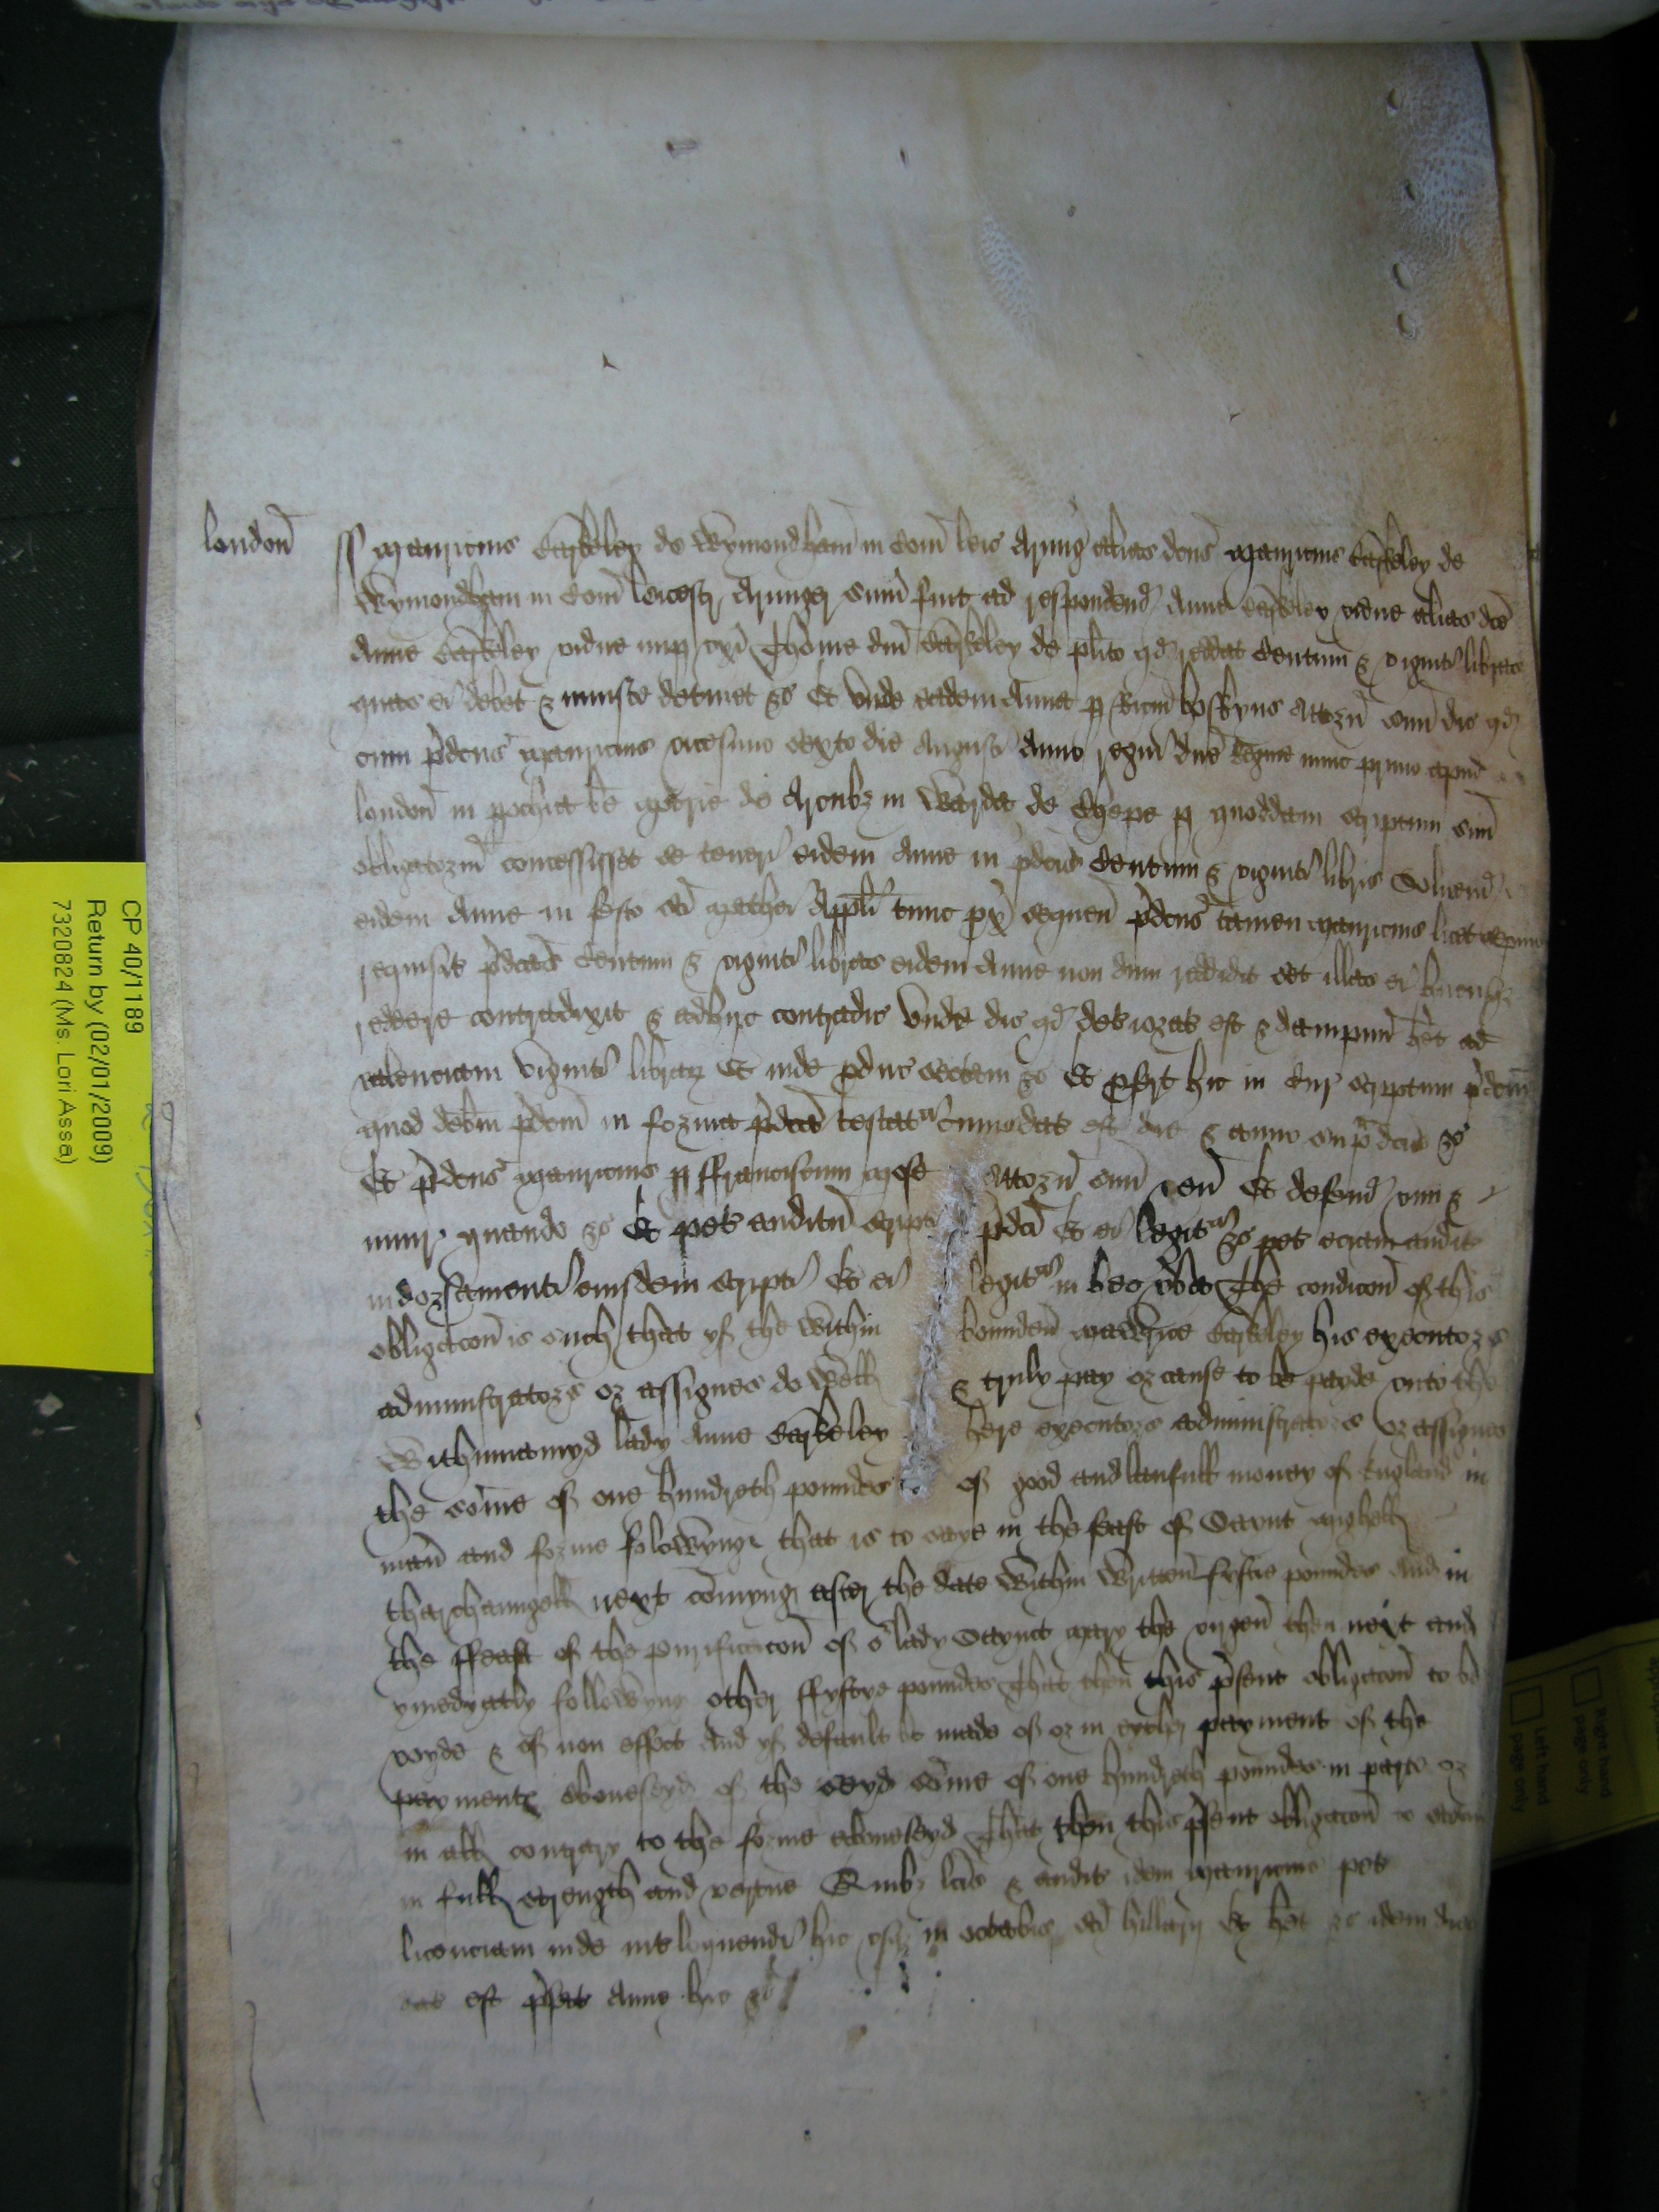 londoñ ss Mauricius Barkeley de Wymondham in Com̃ leic Armig̃ alias dcũs Mauricius Barkeley de
Wymondham in Com̃ leicestr Armiger sum̃ fuit ad respondend Anne Barkeley vidue alias dcẽ
Anne Barkeley vidue nup ux̃ Thome dñi Barkeley de plito qd reddat Centum & viginti libras
quas ei debet & iniuste detinet &c Et unde eadem Anna p Ricm̃ hoskyns Attorñ suũ dic qd
cum p̃dcũs Mauricius vicesimo sexto die Augusti Anno regni dñe Regine nunc primo apud
london in pochia bẽ Marie de Arcubz in Warda de Chepe p quoddam scriptum suũ
obligatoriũ concessisset se teneri eidem Anne in p̃dcis Centum & viginti libris Solvend
eidem Anne in festo sc̃i Mathei Appli tunc px̃ sequeñ p̃dcũs tamen Mauricius licet sepius
requisit p̃dcas Centum & viginti libras eidem Anne non dum reddidit set illas ei hucusqz
reddere contradixit & adhuc contradic Unde dic qd det̃iorat est & dampnũ het ad
valenciam Viginti librar Et inde pduc sectam &c Et pfert hic in Cur scriptum p̃dcm̃
quod debm̃ p̃dcm̃ in forma p̃dca testat cuius dat est die & anno sup̃dcis &c
Et p̃dcũs Mauricius p Franciscum Attorñ suũ veñ Et defend vim &
iniur quando &c Et pet auditũ scripti p̃dci Et ei legit &c pet eciam audit
indorsamenti eiusdem scripti Et ei legit in hec verba The condicoñ of this
obligacoñ is such that yf the within boundeñ Mawrice Barkeley his executors
administrators or assignes do well & truly pay or cause to be payde unto the
Withinnamyd lady Anne Barkeley here executors administrators or assignes
the som̃e of one hundreth poundes of good and laufull money of England in
mañ and forme folowynge that is to saye in the feast of Saynt Mighell
tharchaungell next comyng after the date within writteñ fyftie poundes And in
the ffeast of the purificacoñ of oʳ lady Saynct Mary the virgeñ then next and
ymedyatly followyng other ffyftye poundes That then this p̃sent obligacoñ to be
voyde & of non effect And yf default be made of or in eyther payment of the
payments aboueseyd of the seyd som̃e of one hundreth poundes in parte or
in all contrary to the forme aboueseyd That then this p̃sent obligacoñ to stand
in full strength and vertue Quibz lcis & audit idem Mauricius pet
licenciam inde int̃loquendi hic usqz in octabis sc̃i hillarij Et het &c idem dies
dat est p̃fat Anne hic &c
CP 40/1189
Return by (02/01/2009)
7320824 (Ms. Lori Assa)
Right hand
page only
Left hand
page only